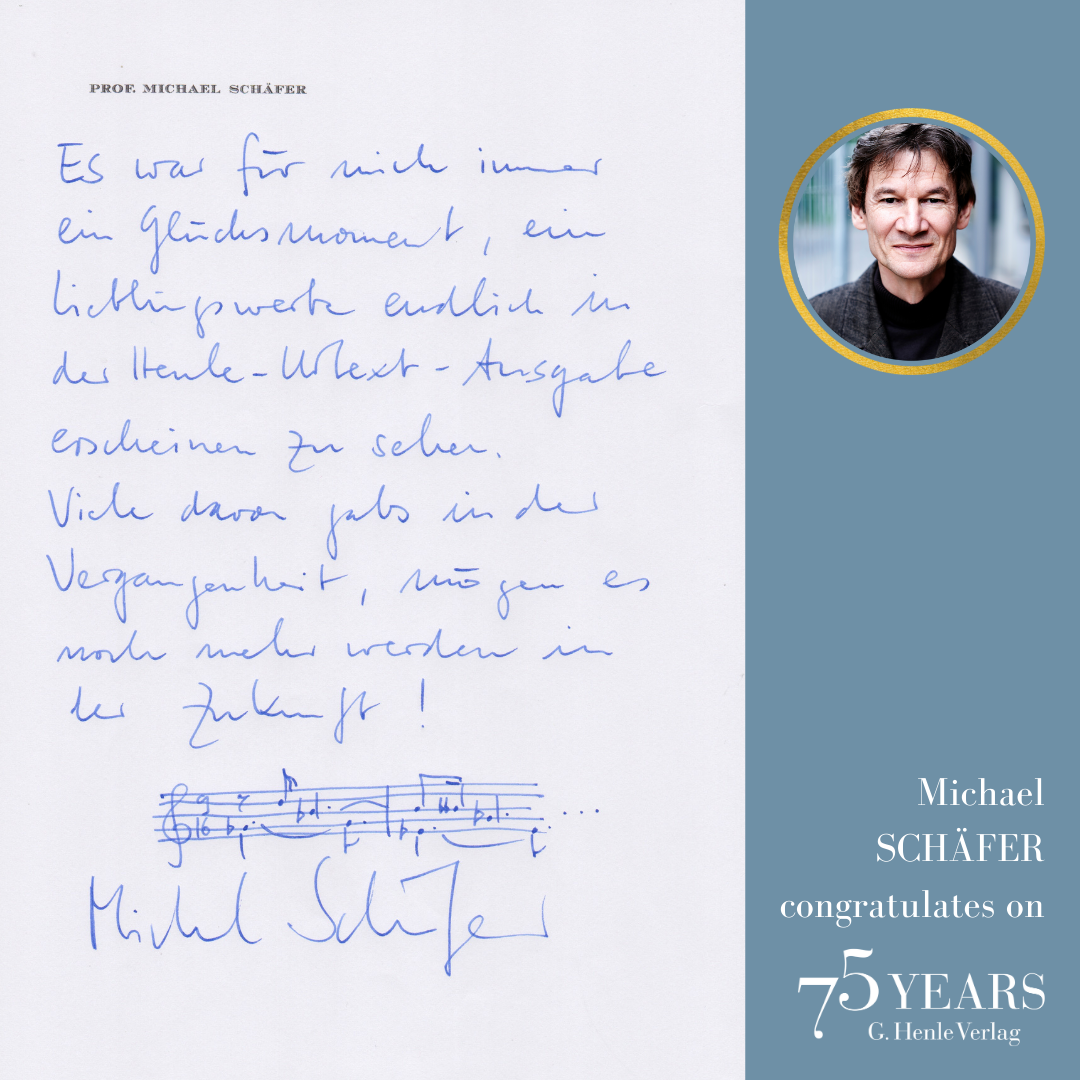 PROF. MICHAEL SCHÄFER
Es war für mich immer
ein Glücksmoment, ein
Lieblingswerk endlich in
der Henle-Urtext-Ausgabe
erscheinen zu sehen.
Viele davon gabs in der
Vergangenheit, mögen es
noch mehr werden in
der Zukunft!
9
16
...
Michael Schäfer
Michael
SCHÄFER
congratulates on
75 YEARS
G. Henle Verlag